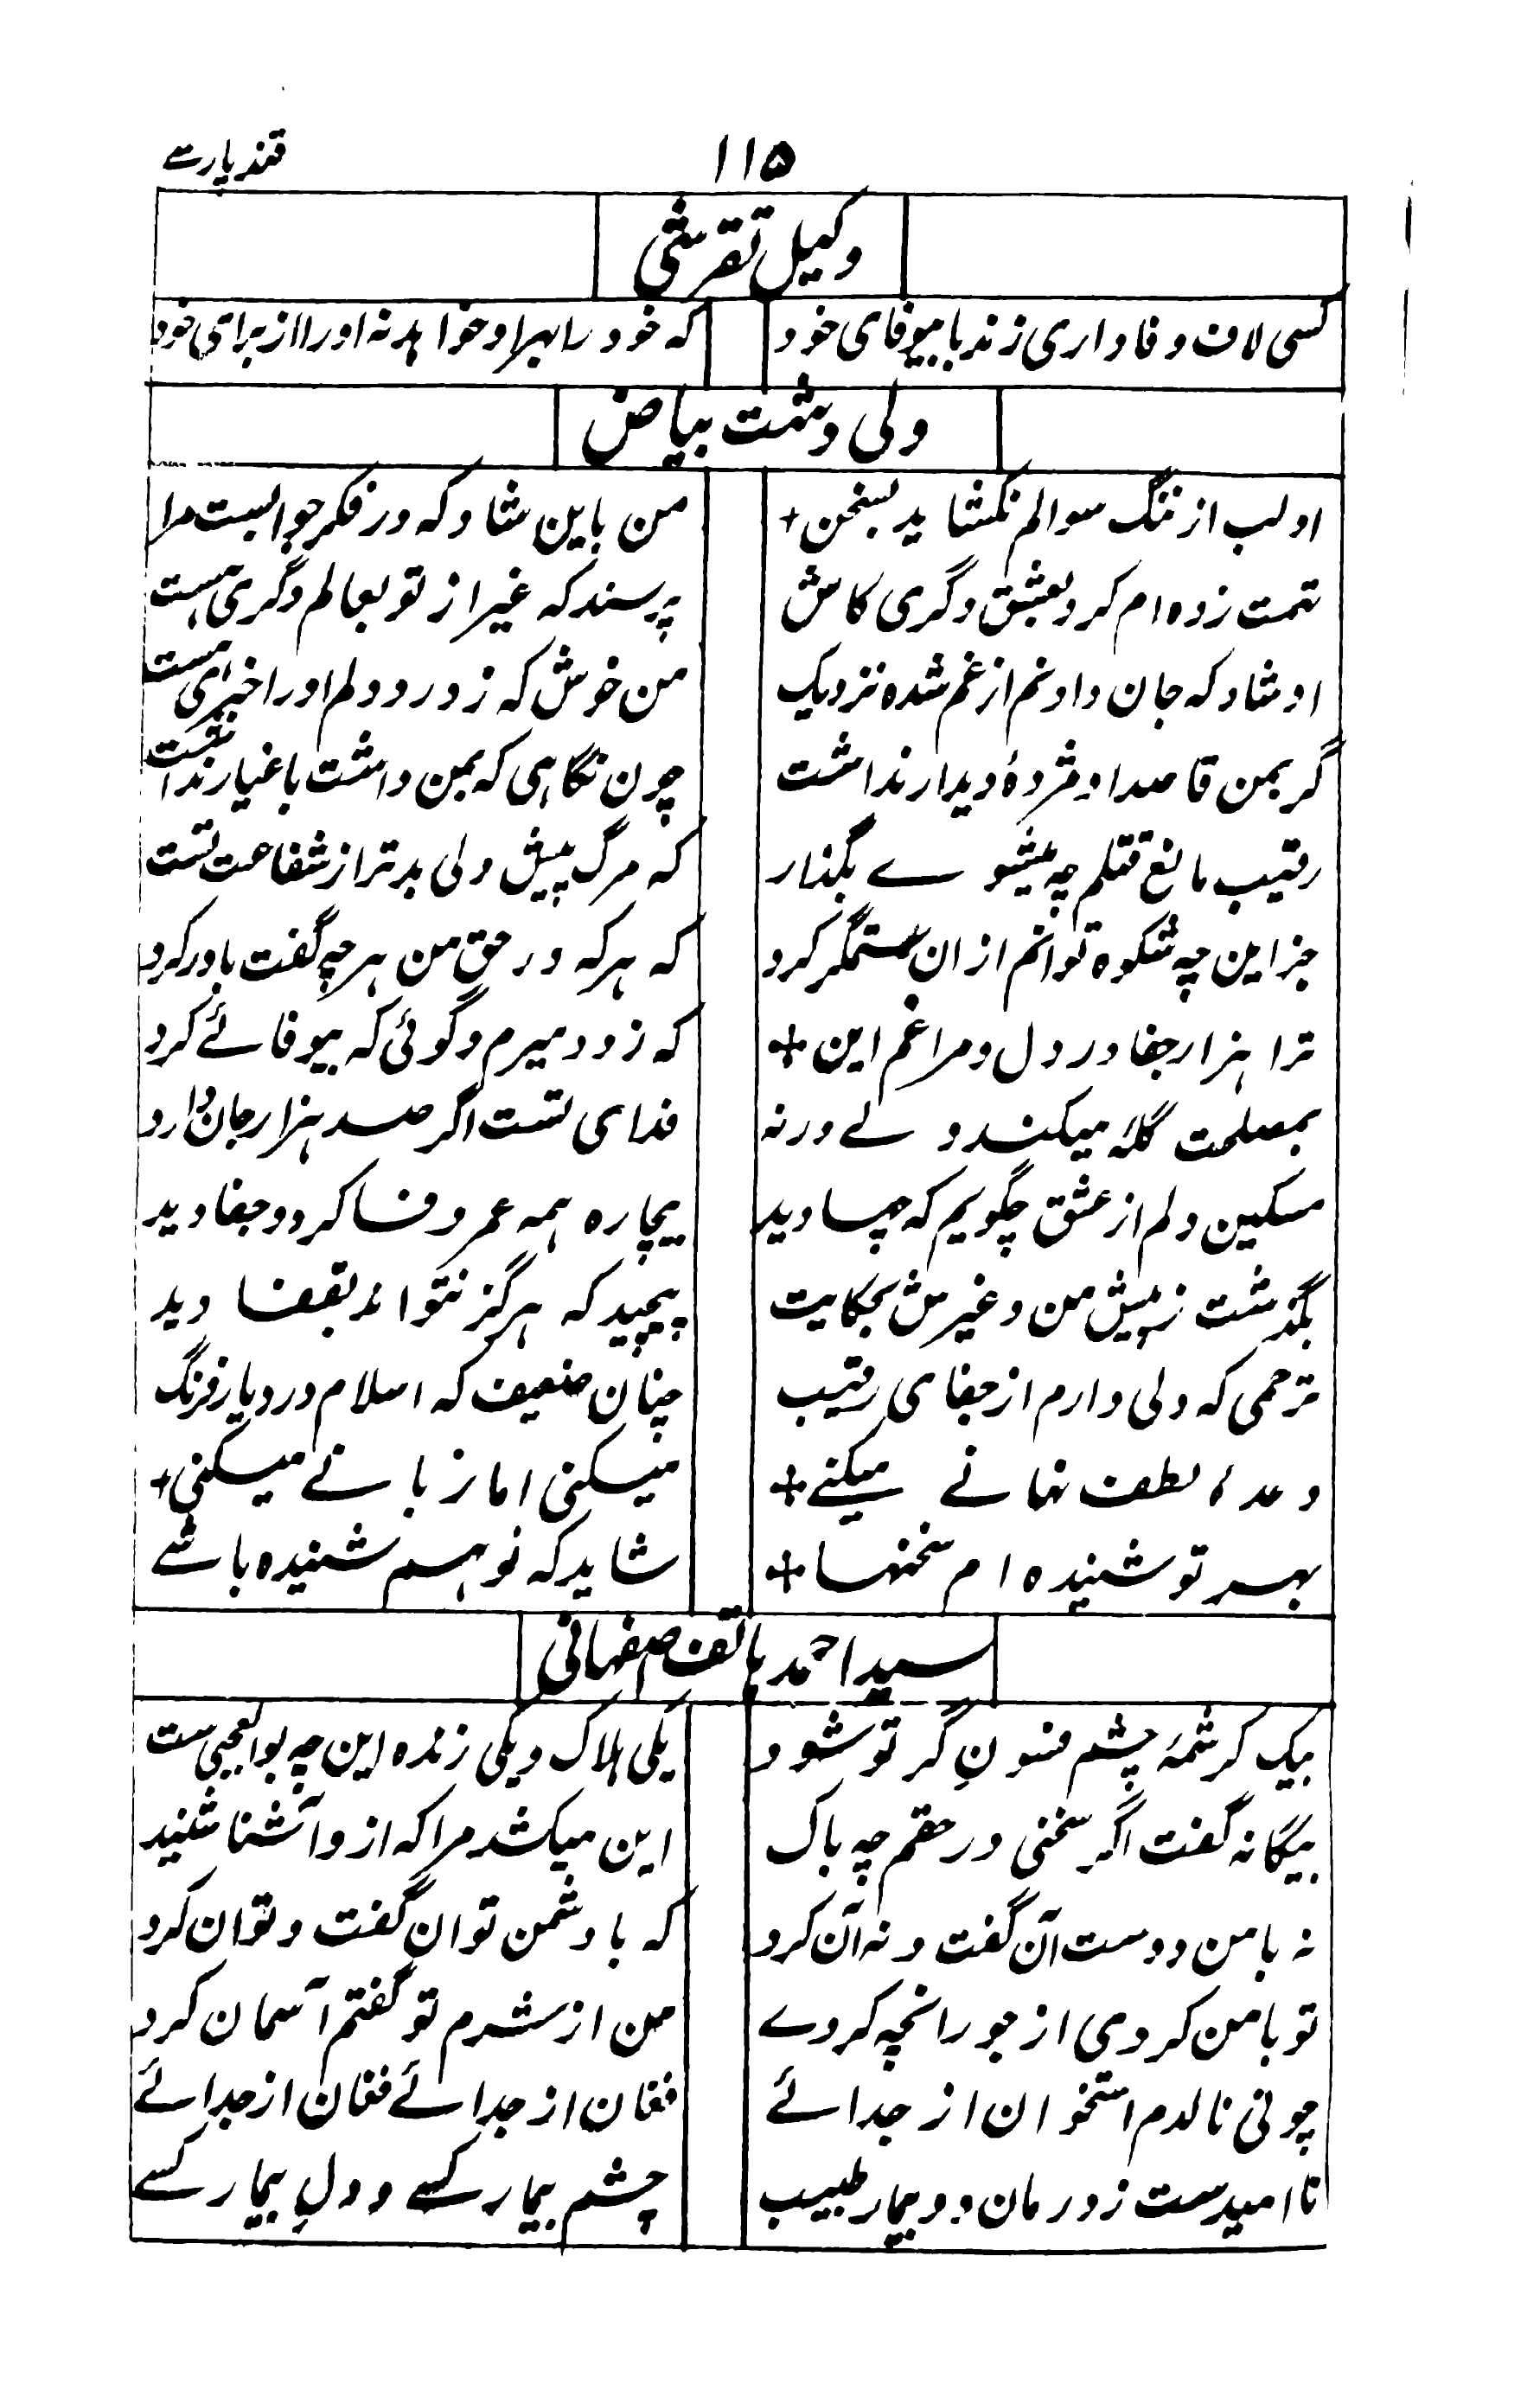 ۱۱۵ قند پارسے
وکیل تفرشی
کسی لاف وفاداری زند با بیوفای خود که خود را بهر او خواهد نه او را از برای خود
ولی دشت بیاض
او لب از ننگ سوالم نکشاید بسخن + من باین شاد که در فکر جوابست مرا
تهمت زده ام کرد بعشق دگری کاش پرسند که غیر از تو بعالم دگری هست
او شاد که جان دادنم از غم شده نزدیک من خوش که ز درد دلم او را خبری هست
گر بمن قاصد او مژدهٔ دیدار نداشت چون نگاهی که بمن داشت باغیار نداشت
رقیب مانع قتلم چه میشوے بگذار که مرگ پیش ولی بدتر از شفاعت تست
جز این چه شکوه توانم از ان ستمگر کرد که هر که در حق من هر چه گفت باور کرد
ترا هزار جفا در دل و مرا غم این + که زود میرم و گوئی که بیوفائے کرد
بمصلحت گله میکند ولے ورنه فدای تست اگر صد هزار جان دارد
مسکین دلم از عشق چگویم که چها دید بیچاره همه عمر وفا کرد و جفا دید
بگذشت ز پیش من و غیرش بحکایت پیچید که هرگز نتواند بقفا دید
ترحمی که ولی دارم از جفای رقیب چنان ضعیف که اسلام در دیار فرنگ
وعدهٔ لطف نهانے میکنے + میکنی اما زبانے میکنی +
بهر تو شنیده ام سخنها + شاید که تو هم شنیده باشے
سید احمد هاتف اصفهانی
بیک کرشمهٔ چشم فسونِ گر تو شود یکی هلاک و یکی زنده این چه بوالعجبی ست
بیگانه گفت اگر سخنی در حقم چه باک این میکشد مرا که ازو آشنا شنید
نه با من دوست آن گفت و نه آن کرد که با دشمن توان گفت و توان کرد
تو با من کردی از جور انچه کردے من از شرم تو گفتم آسمان کرد
چو نی نالدم استخوان از جدائے فغان از جدائے فغان از جدائے
نا امیدست ز درمان دو بیمار طبیب چشم بیمار کسے و دلِ بیمار کسے